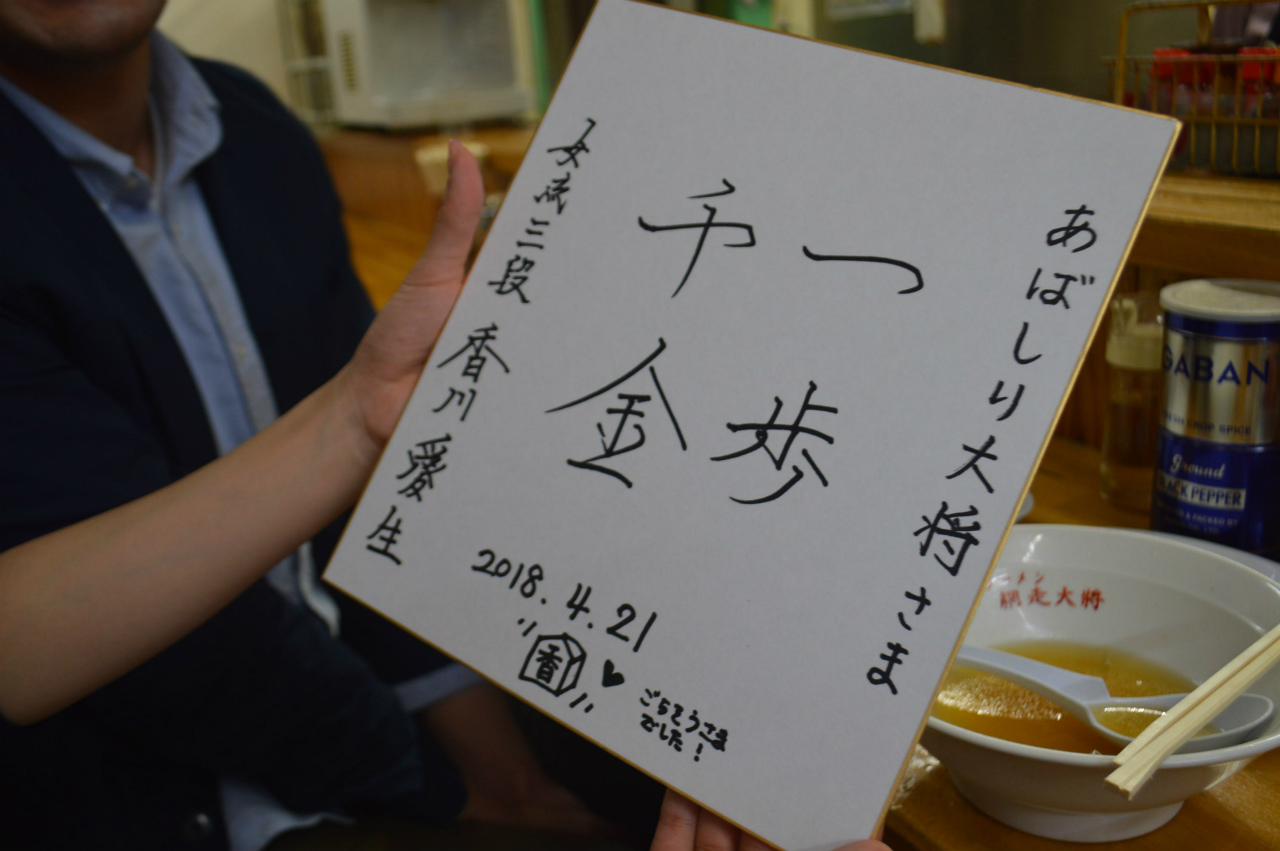 あばしり大将さま
一歩
千金
女流三段 香川愛生
2018.4.21
香
ごちそうさま
でした!
網走大将
GABAN
Ground
BLACK PEPPER